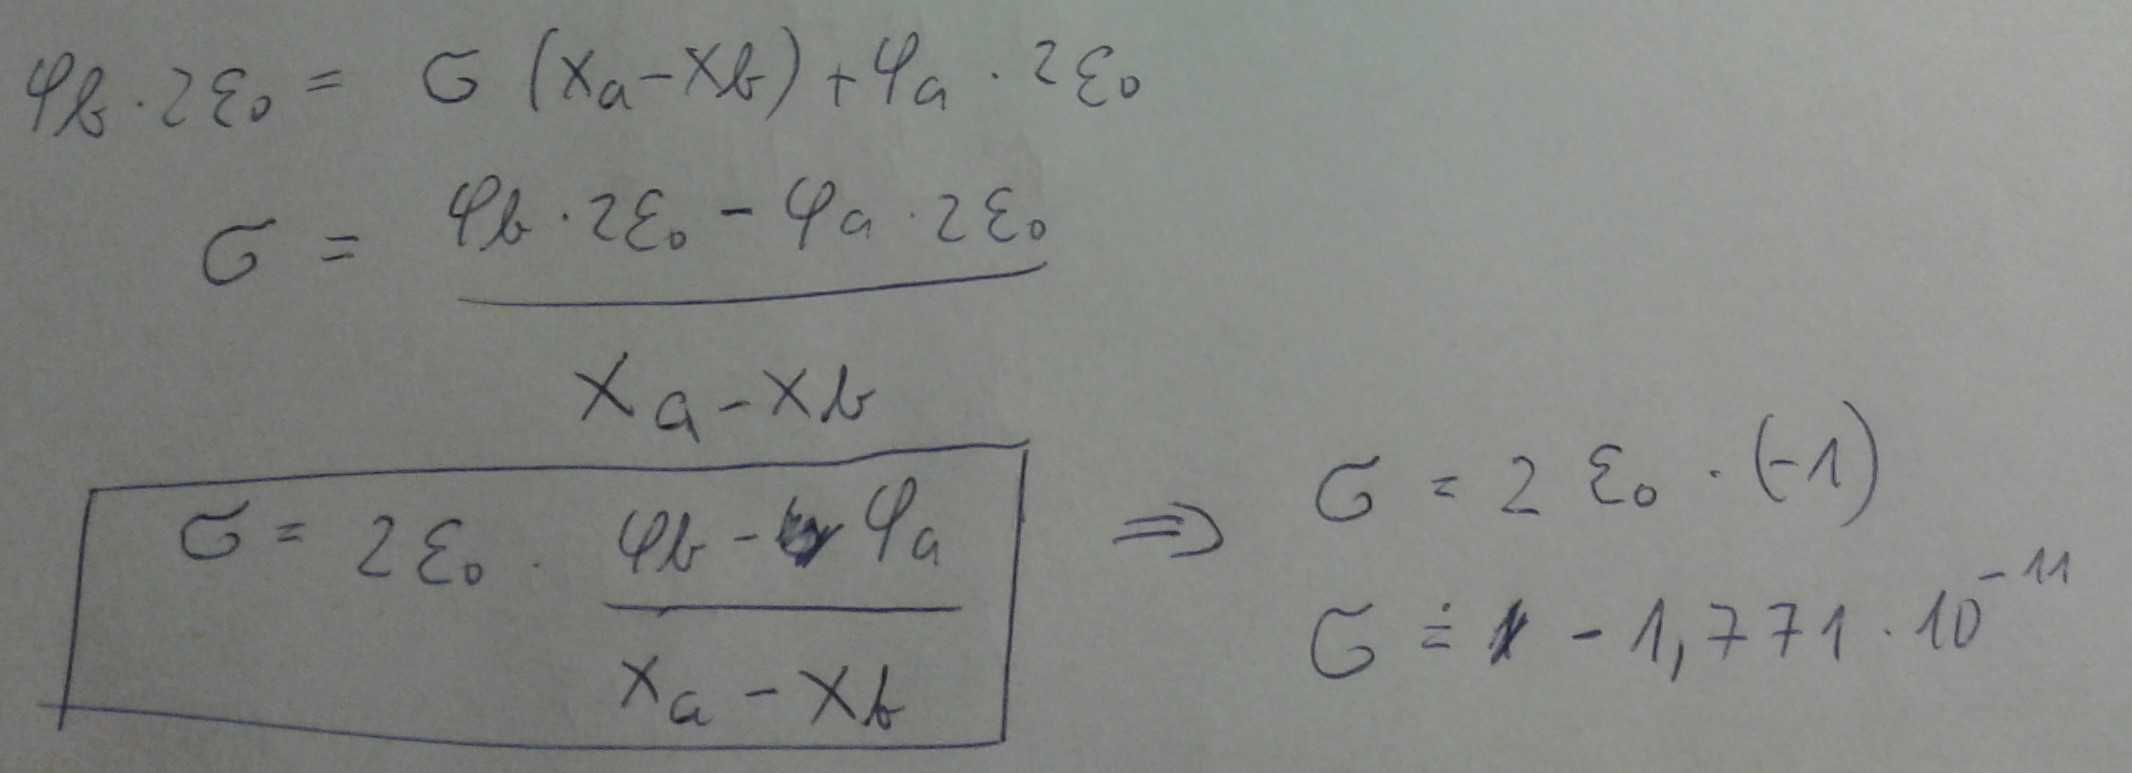 φb · 2ε₀ = σ (xa − xb) + φa · 2ε₀
σ = (φb · 2ε₀ − φa · 2ε₀) / (xa − xb)
σ = 2ε₀ · (φb − φa) / (xa − xb) ⇒ σ = 2 ε₀ · (−1)
σ ≐ − 1,771 · 10⁻¹¹